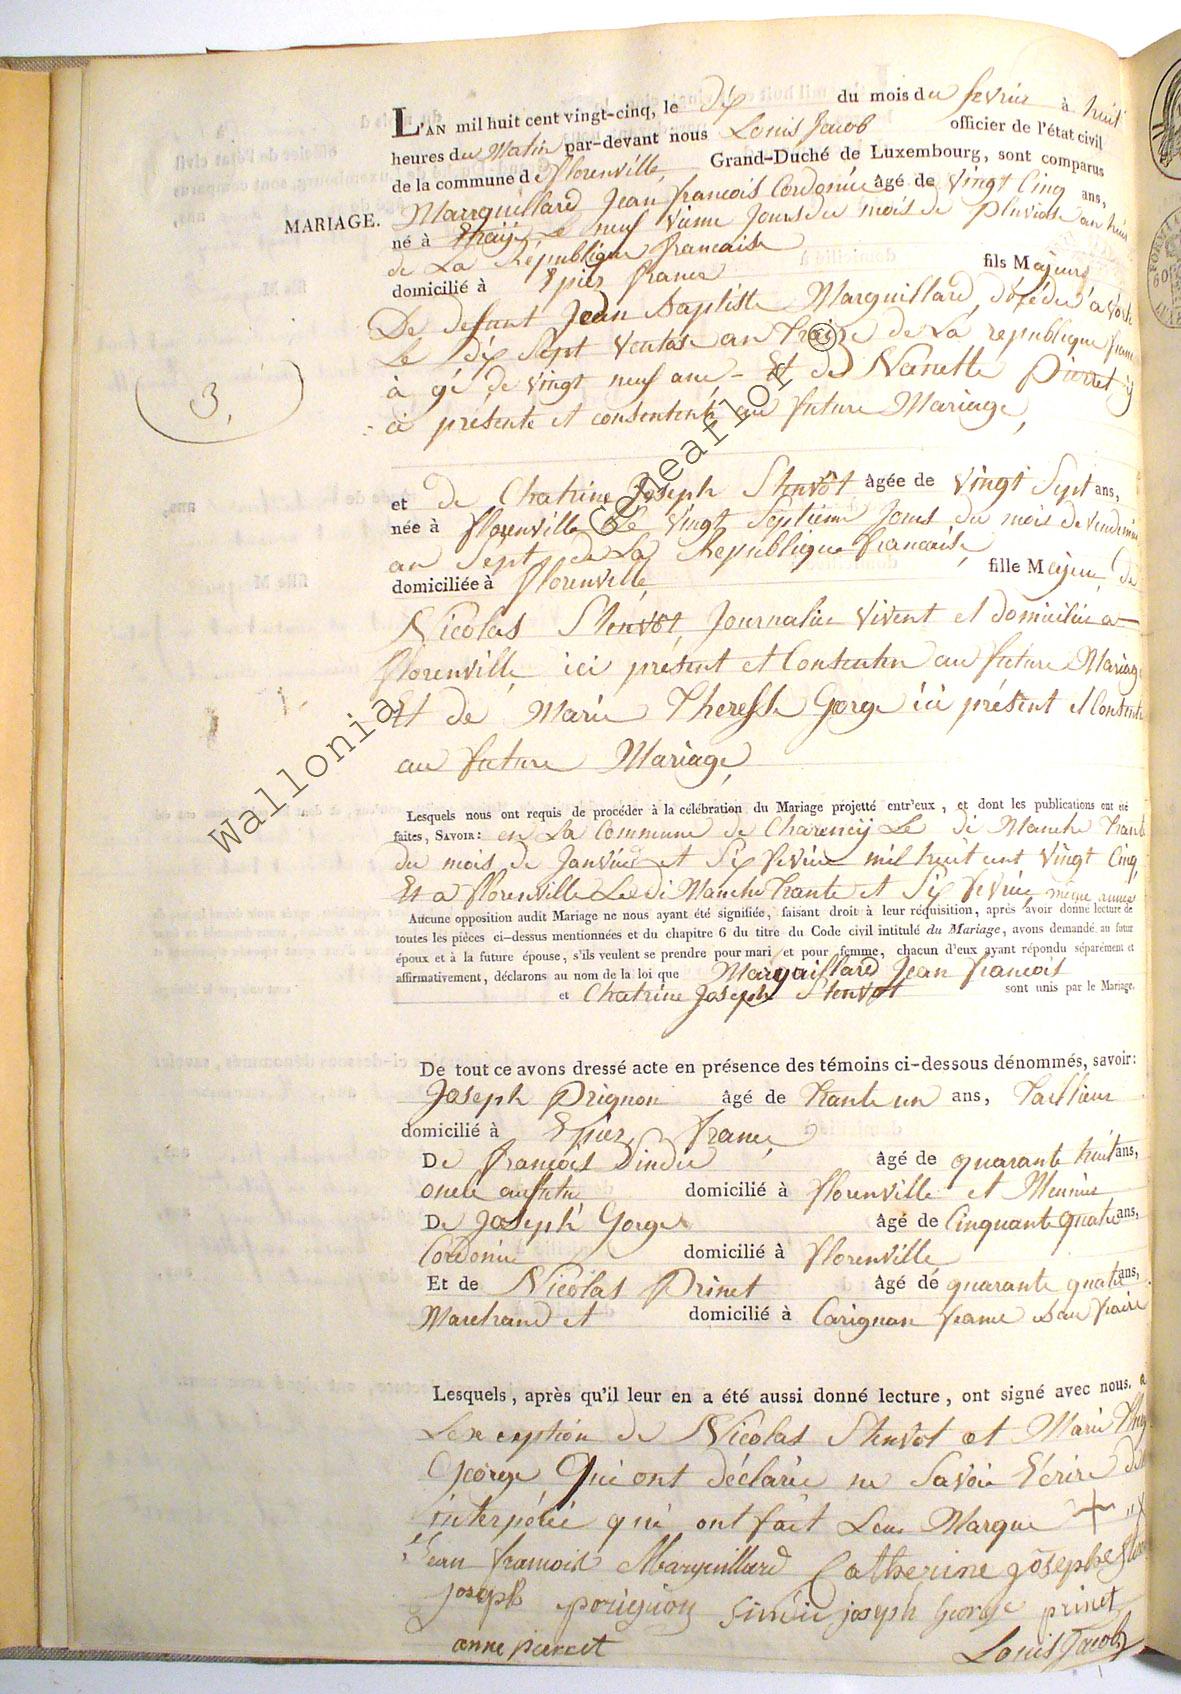 LAN mil huit cent vingt-cinq, le dix du mois du fevrier à huit
heures du Matin par-devant nous Louis Jacob officier de l'état civil
de la commune de florenville, Grand-Duché de Luxembourg, sont comparus
MARIAGE. Marguillard Jean francois Cordonie âgé de vingt Cinq ans,
né à le neuf vieme Jours du mois de Pluviose an huit
de La République francaise
domicilié à Epiez france fils Majeurs
De defunt Jean Baptiste Marguillard, décédé a
Le dix Sept Ventose an Traize de La république
3,
à gé de vingt neuf ans - Et de Nanette Pierret
ci présente et consentente au future Mariage,
et de Chatrine Joseph Stenvot âgée de vingt Sept ans,
née à florenville Le vingt Septieme Jours du mois de
an Sept de La Republique francaise,
domiciliée à florenville, fille Majeure, De
Nicolas Stenvot, Journalie vivent et domicilie a
florenville ici présent et Consenten au future Mariage
Et de Marie Theresse Gorge ici présent et
au future Mariage,
Wallonia © Geaflor
Lesquels nous ont requis de procéder à la célébration du Mariage projetté entr'eux, et dont les publications ont été
faites, SAVOIR: en La Commune de Charency Le di Manche Trante
du mois de Janvier et Six fevrier mil huit cent vingt Cinq,
Et a florenville Le di Manche Trante et Six fevrier, même année
Aucune opposition audit Mariage ne nous ayant été signifiée, faisant droit à leur réquisition, après avoir donné lecture de
toutes les pièces ci-dessus mentionnées et du chapitre 6 du titre du Code civil intitulé du Mariage, avons demandé au futur
époux et à la future épouse, s'ils veulent se prendre pour mari et pour femme, chacun d'eux ayant répondu séparément et
affirmativement, déclarons au nom de la loi que Marguillard Jean francois
et Chatrine Joseph Stenvot sont unis par le Mariage.
De tout ce avons dressé acte en présence des témoins ci-dessous dénommés, savoir:
Joseph Prignon âgé de Trante un ans, Taillieur
domicilié à Epiez, france,
De francois Sindic âgé de quarante huit ans,
oncle domicilié à florenville et Meunier
De Joseph Gorge âgé de Cinquante quatre ans,
Cordonie domicilié à florenville
Et de Nicolas Prinet âgé de quarante quatre ans,
Marchand et domicilié à Carignan france
Lesquels, après qu'il leur en a été aussi donné lecture, ont signé avec nous. a
Lexception de Nicolas Stenvot et Marie
George, Qui ont déclarie ne Savoir Ecrire de
interpelée qui ont fait Leur Marque + X
Jean francois Marguillard Catherine josephe
joseph porignon Sindic joseph George prinet
anne pierret Louis Jacob